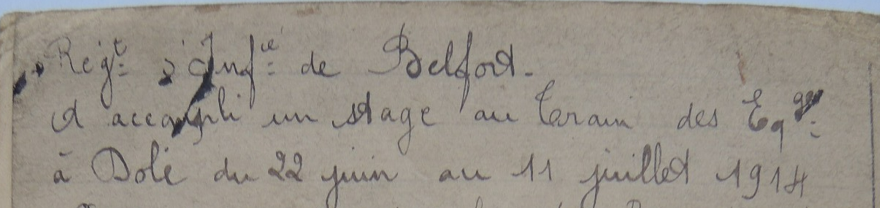 Régt d'Infie de Belfort.
A accompli un stage au Terain des Eqges
à Dole du 22 juin au 11 juillet 1914